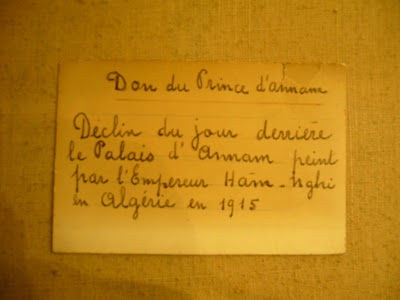 Don du Prince d'annam
Déclin du jour derrière
le Palais d'Annam peint
par l'Empereur Hàm-Nghi
en Algérie en 1915